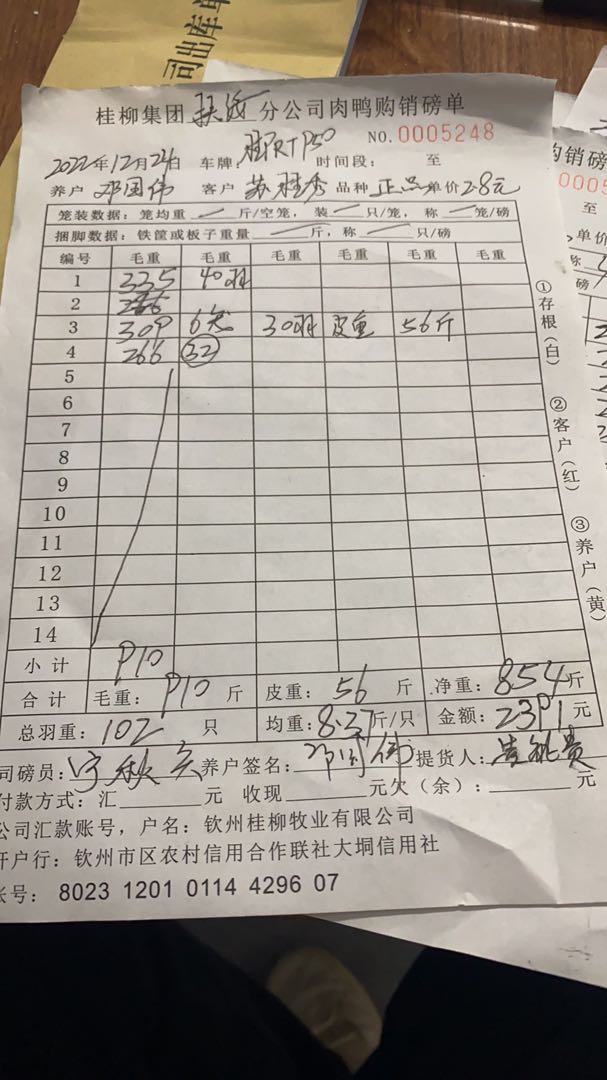 司出库单
桂柳集团 扶绥 分公司肉鸭购销磅单
NO.0005248
2022年12月24日 车牌: 时间段: 至
养户 邓国伟 客户 苏桂秀 品种 正品 单价 2.8元
笼装数据: 笼均重 斤/空笼, 装 只/笼, 称 笼/磅
捆脚数据: 铁筐或板子重量 斤, 称 只/磅
编号 毛重 毛重 毛重 毛重 毛重 毛重
1 335 40羽
2
3 309 6笼 30羽 皮重 56斤
4 266 32
5
6
7
8
9
10
11
12
13
14
小计 910
合计 毛重: 910 斤 皮重: 56 斤 净重: 854 斤
总羽重: 102 只 均重: 8.37 斤/只 金额: 2391 元
司磅员: 养户签名: 邓国伟 提货人:
付款方式: 汇 元 收现 元欠(余): 元
公司汇款账号, 户名: 钦州桂柳牧业有限公司
开户行: 钦州市区农村信用合作联社大垌信用社
账号: 8023 1201 0114 4296 07
①存根(白)
②客户(红)
③养户(黄)
购销磅单
0005
至
单价